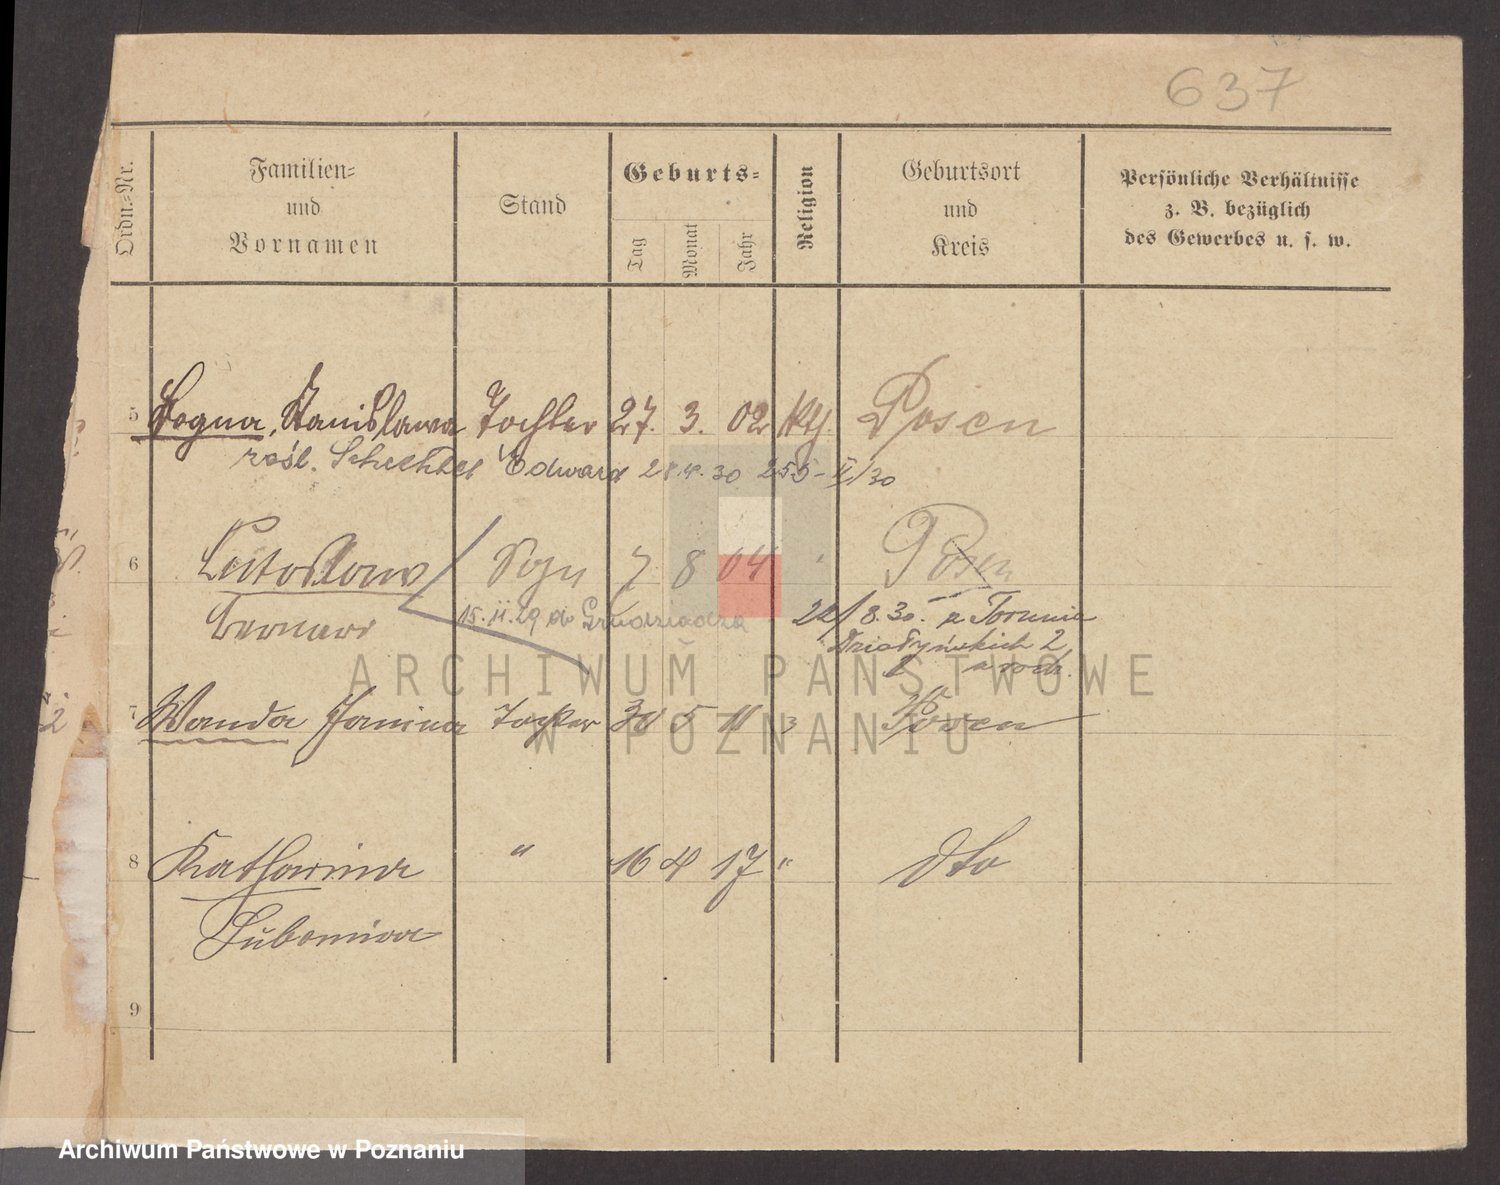 637
Ordn.-Nr.
Familien-
und
Vornamen
Stand
Geburts-
Tag
Monat
Jahr
Religion
Geburtsort
und
Kreis
Persönliche Verhältnisse
z. B. bezüglich
des Gewerbes u. s. w.
5 Bogna, Stanislawa Tochter 27. 3. 02 kth. Posen
zaśl. Edward 28.4.30 255-II/30
6 Lutoslaw Sohn 7 8 04 Posen
Bernard 15.11.29 do Grudziądza 22/8.30. z Torunia
Działyńskich 2
u rodz.
7 Wanda Janina Tochter 30 5 11 Posen
8 Katharina " 16 4 17 " dto
Lubomira
9
ARCHIWUM PAŃSTWOWE
W POZNANIU
Archiwum Państwowe w Poznaniu